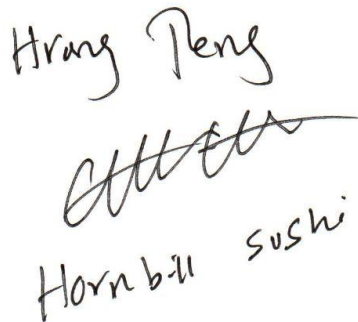 Hrang Peng
Hornbill sushi